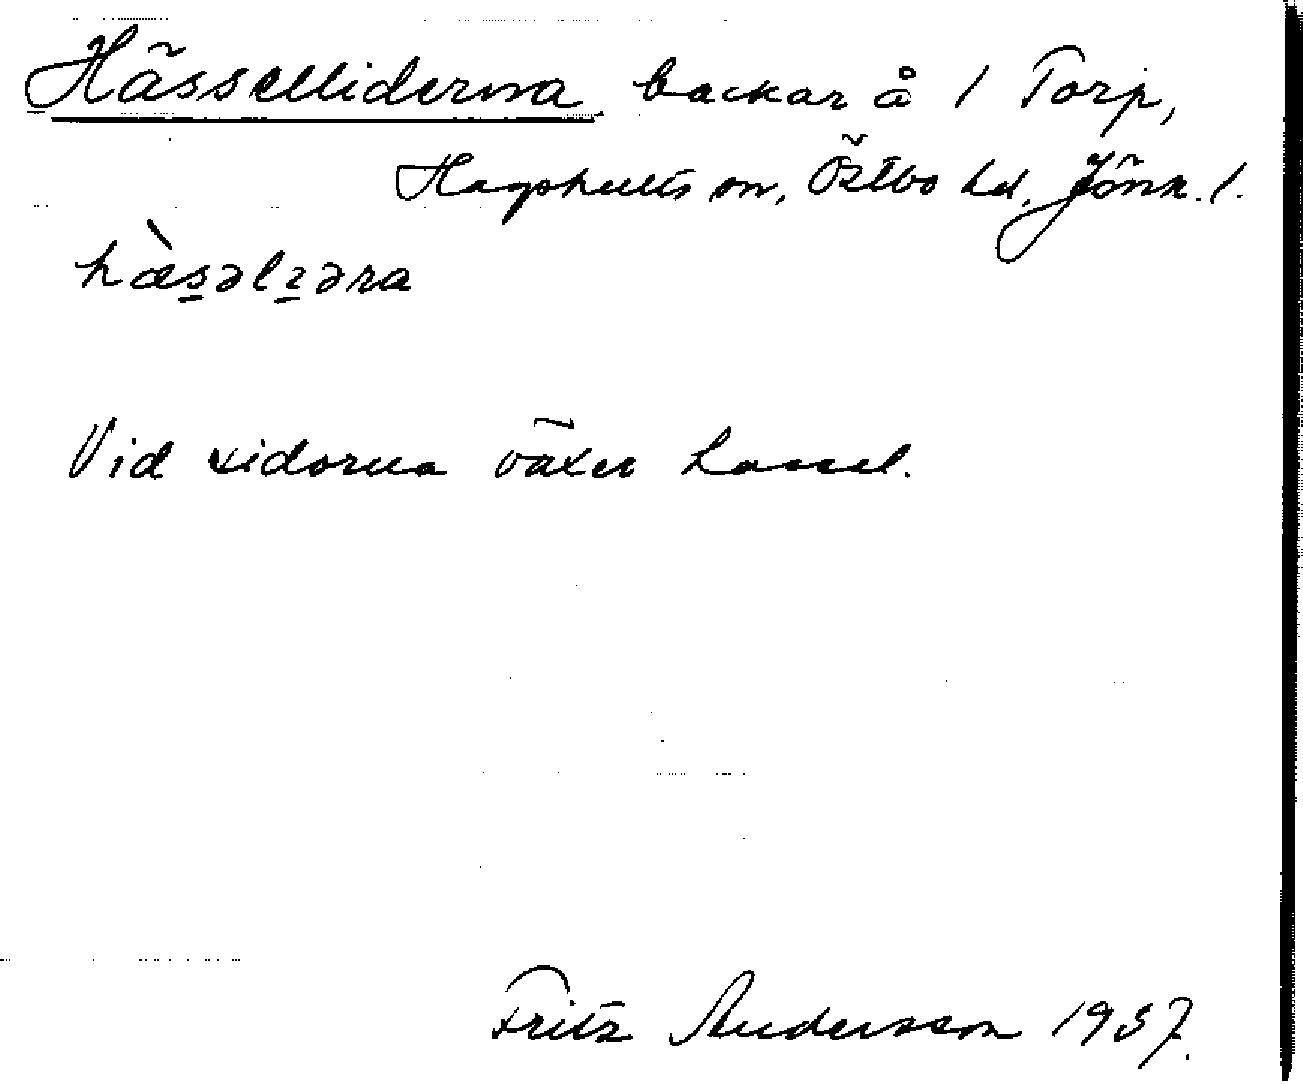 Hässelliderna backar å 1 Torp,
Hagshults sn, Östbo hd, Jönk. l.
hæ̀s̱əlɪ̱əra
Vid sidorna växer hassel.
Fritz Andersson 1937.